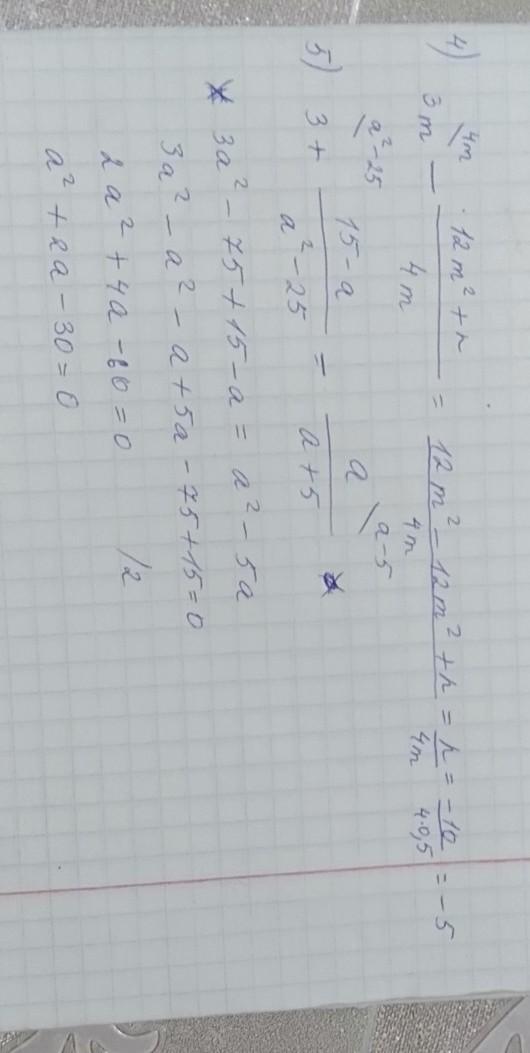 4) 3m \4m − 12m² + n / 4m = 12m² − 12m² + n / 4m = n / 4m = −10 / 4·0,5 = −5
5) \a²−25 3 + 15 − a / a² − 25 = a / a + 5 \a−5 *
* 3a² − 75 + 15 − a = a² − 5a
3a² − a² − a + 5a − 75 + 15 = 0
2a² + 4a − 60 = 0 /2
a² + 2a − 30 = 0